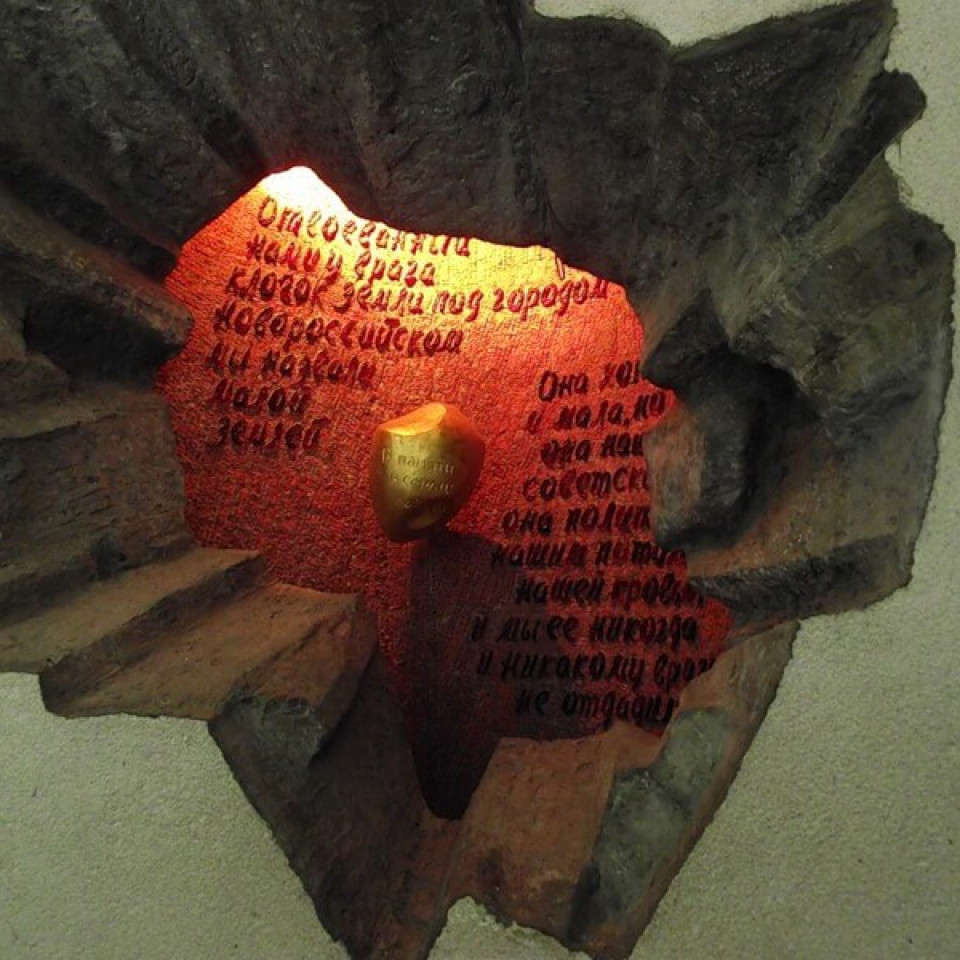 Отвоеванный
нами у врага
клочок земли под городом
новороссийском
мы назвали
малой
землей
в памяти
Она хот
и мала, но
она наш
советск
она полит
нашим потом
нашей кровью,
и мы ее никогда
и никакому врагу
не отдадим